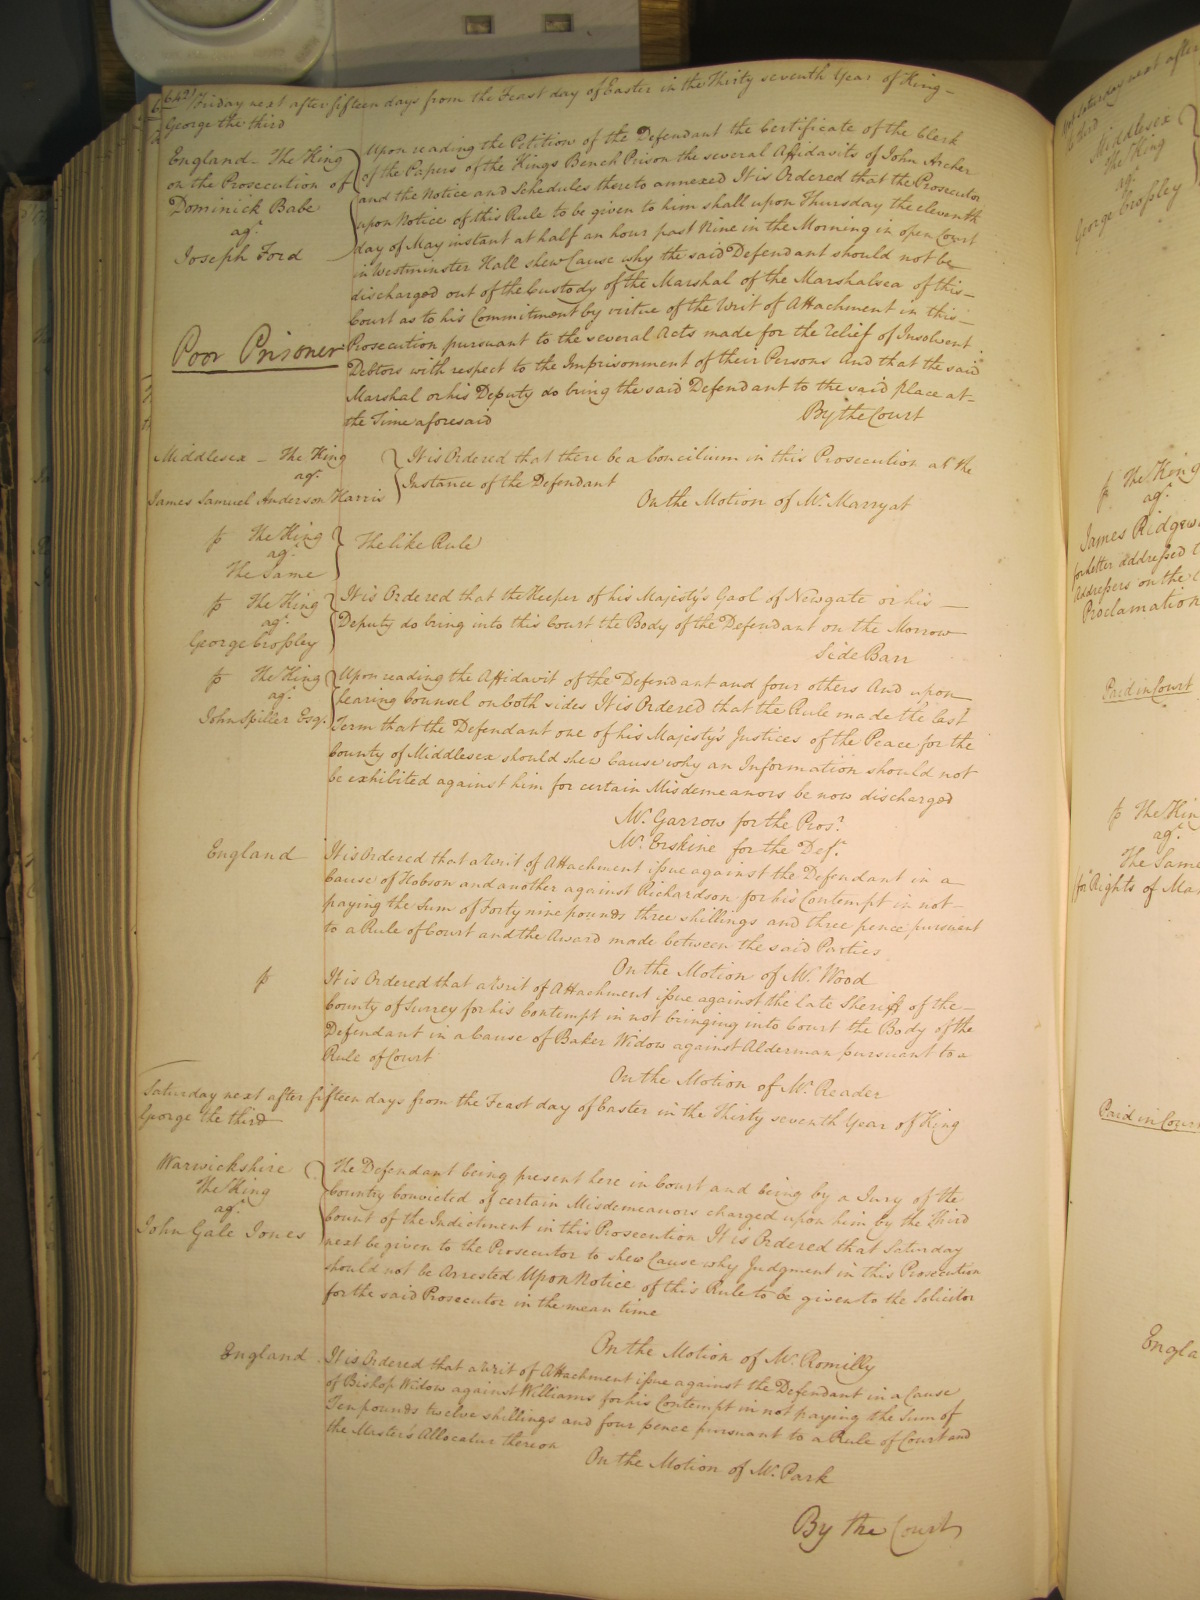 642) Friday next after fifteen days from the Feast day of Easter in the Thirty seventh Year of King
George the third
England The King
on the Prosecution of
Dominick Babe
agt.
Joseph Ford
Upon reading the Petition of the Defendant the Certificate of the Clerk
of the Papers of the Kings Bench Prison the several Affidavits of John Archer
and the Notice and Schedules thereto annexed It is Ordered that the Prosecutor
upon Notice of this Rule to be given to him shall upon Thursday the eleventh
day of May instant at half an hour past Nine in the Morning in open Court
in Westminster Hall shew Cause why the said Defendant should not be
discharged out of the Custody of the Marshal of the Marshalsea of this
Court as to his Commitment by virtue of the Writ of Attachment in this
Poor Prisoner
Prosecution pursuant to the several Acts made for the Relief of Insolvent
Debtors with respect to the Imprisonment of their Persons And that the said
Marshal or his Deputy do bring the said Defendant to the said place at
the Time aforesaid
By the Court
Middlesex The King
agt.
James Samuel Anderson Harris
It is Ordered that there be a Concilium in this Prosecution at the
Instance of the Defendant
On the Motion of Mr. Marryat
The King
agt.
The Same
The like Rule
The King
agt.
George Crossley
It is Ordered that the Keeper of his Majesty's Gaol of Newgate or his
Deputy do bring into this Court the Body of the Defendant on the Morrow
Side Barr
The King
agt.
John Spiller Esqr.
Upon reading the Affidavit of the Defendant and four others And upon
hearing Counsel on both sides It is Ordered that the Rule made the last
Term that the Defendant one of his Majesty's Justices of the Peace for the
County of Middlesex should shew Cause why an Information should not
be exhibited against him for certain Misdemeanors be now discharged
Mr. Garrow for the Prosr.
Mr. Erskine for the Deft.
England
It is Ordered that a Writ of Attachment issue against the Defendant in a
Cause of Hobson and another against Richardson for his Contempt in not
paying the Sum of Forty nine pounds three shillings and three pence pursuant
to a Rule of Court and the Award made between the said Parties
On the Motion of Mr. Wood
It is Ordered that a Writ of Attachment issue against the late Sheriff of the
County of Surrey for his Contempt in not bringing into Court the Body of the
Defendant in a Cause of Baker Widow against Alderman pursuant to a
Rule of Court
On the Motion of Mr. Reader
Saturday next after fifteen days from the Feast day of Easter in the Thirty seventh Year of King
George the third
Warwickshire
The King
agt.
John Gale Jones
The Defendant being present here in Court and being by a Jury of the
Country Convicted of certain Misdemeanors charged upon him by the Third
Count of the Indictment in this Prosecution It is Ordered that Saturday
next be given to the Prosecutor to shew Cause why Judgment in this Prosecution
should not be Arrested Upon Notice of this Rule to be given to the Solicitor
for the said Prosecutor in the mean time
On the Motion of Mr. Romilly
England
It is Ordered that a Writ of Attachment issue against the Defendant in a Cause
of Bishop Widow against Williams for his Contempt in not paying the Sum of
Ten pounds twelve shillings and four pence pursuant to a Rule of Court and
the Master's Allocatur thereon
On the Motion of Mr. Park
By the Court
Saturday next after
Middlesex
The King
agt.
George Crossley
The King
agt.
James Ridgew
for Letter addressed t
Addressers on the
Proclamation
Paid in Court
The Kin
agt.
The Same
for Rights of Man
Paid in Cour
Engla